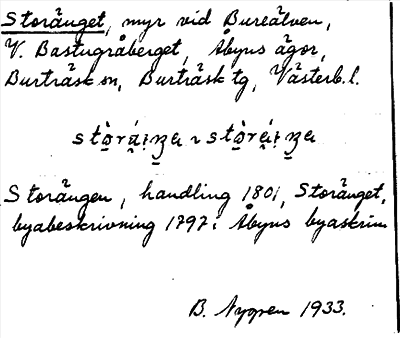 Storänget, myr vid Bureälven,
V. Bastugråberget, Åbyns ägor,
Burträsk sn, Burträsk tg, Västerb.l.
Storängen, handling 1801, Storänget,
byabeskrivning 1797: Åbyns byaskrin
B. Nygren 1933.